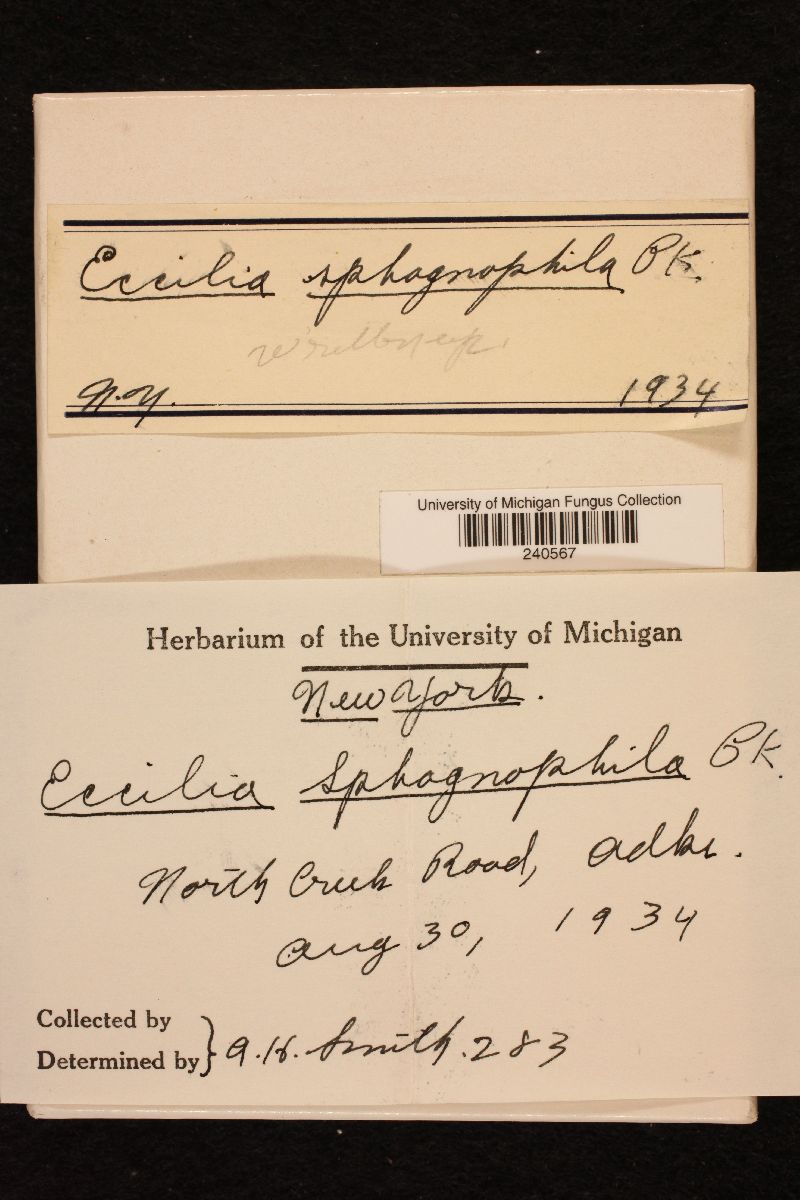 Eccilia sphagnophila Pk.
N.Y. 1934
University of Michigan Fungus Collection
240567
Herbarium of the University of Michigan
New York.
Eccilia Sphagnophila Pk.
North Creek Road, Adks.
Aug 30, 1934
Collected by
Determined by } A.H. Smith. 283